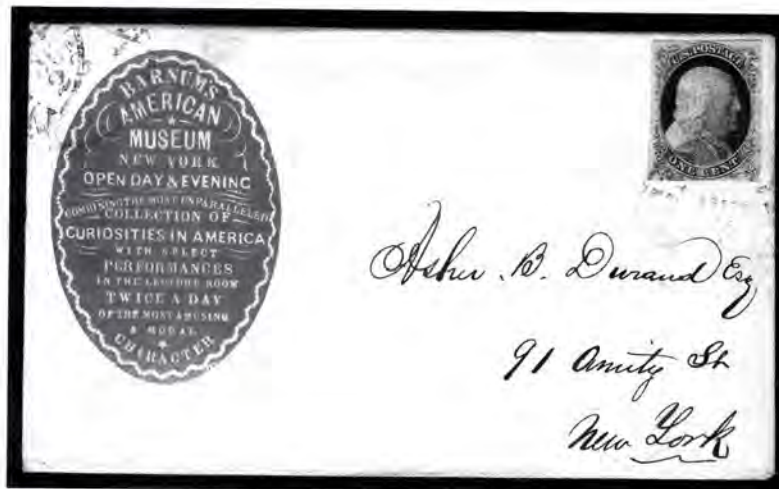 BARNUM'S
AMERICAN
MUSEUM
NEW YORK
OPEN DAY & EVENING
COMBINING THE MOST UNPARALLELED
COLLECTION OF
CURIOSITIES IN AMERICA
WITH SELECT
PERFORMANCES
IN THE LECTURE ROOM
TWICE A DAY
OF THE MOST AMUSING
& MORAL
CHARACTER
U.S. POSTAGE
ONE CENT
Asher. B. Durand Esq
91 Amity St
New York